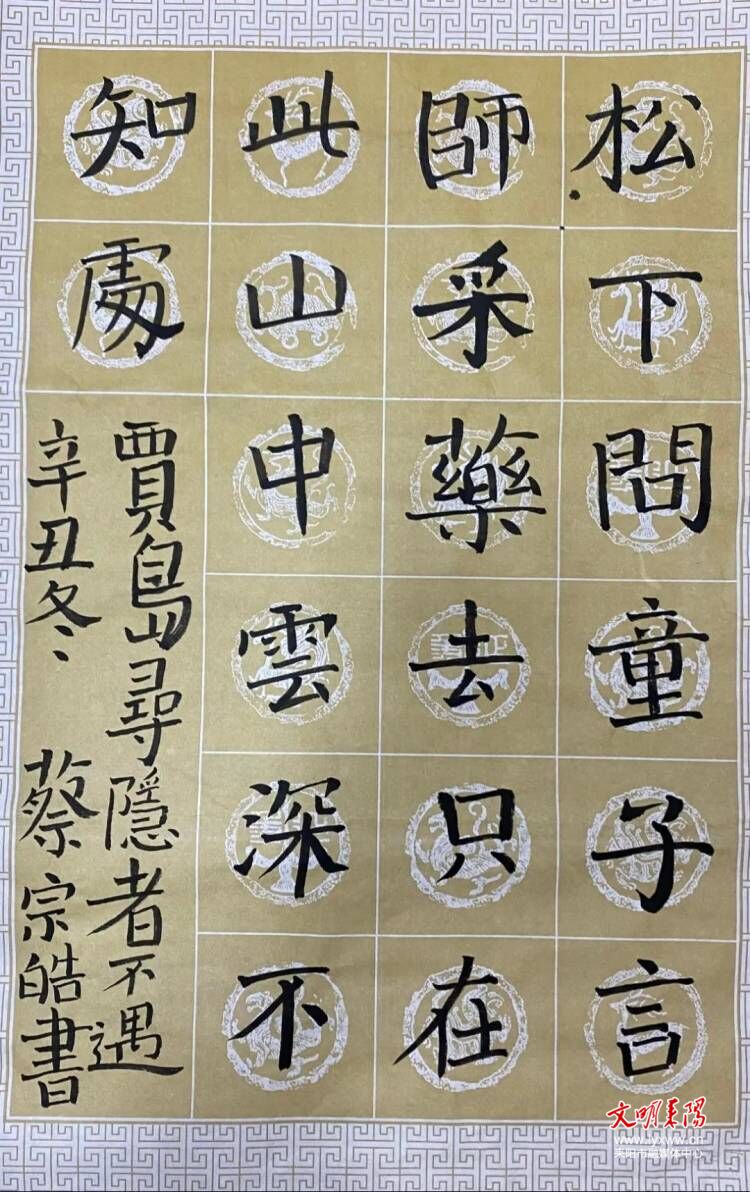 松下問童子言
師采藥去只在
此山中雲深不
知處
賈島尋隱者不遇
辛丑冬 蔡宗皓書
文明耒陽
www.lyxww.cn
耒阳市融媒体中心